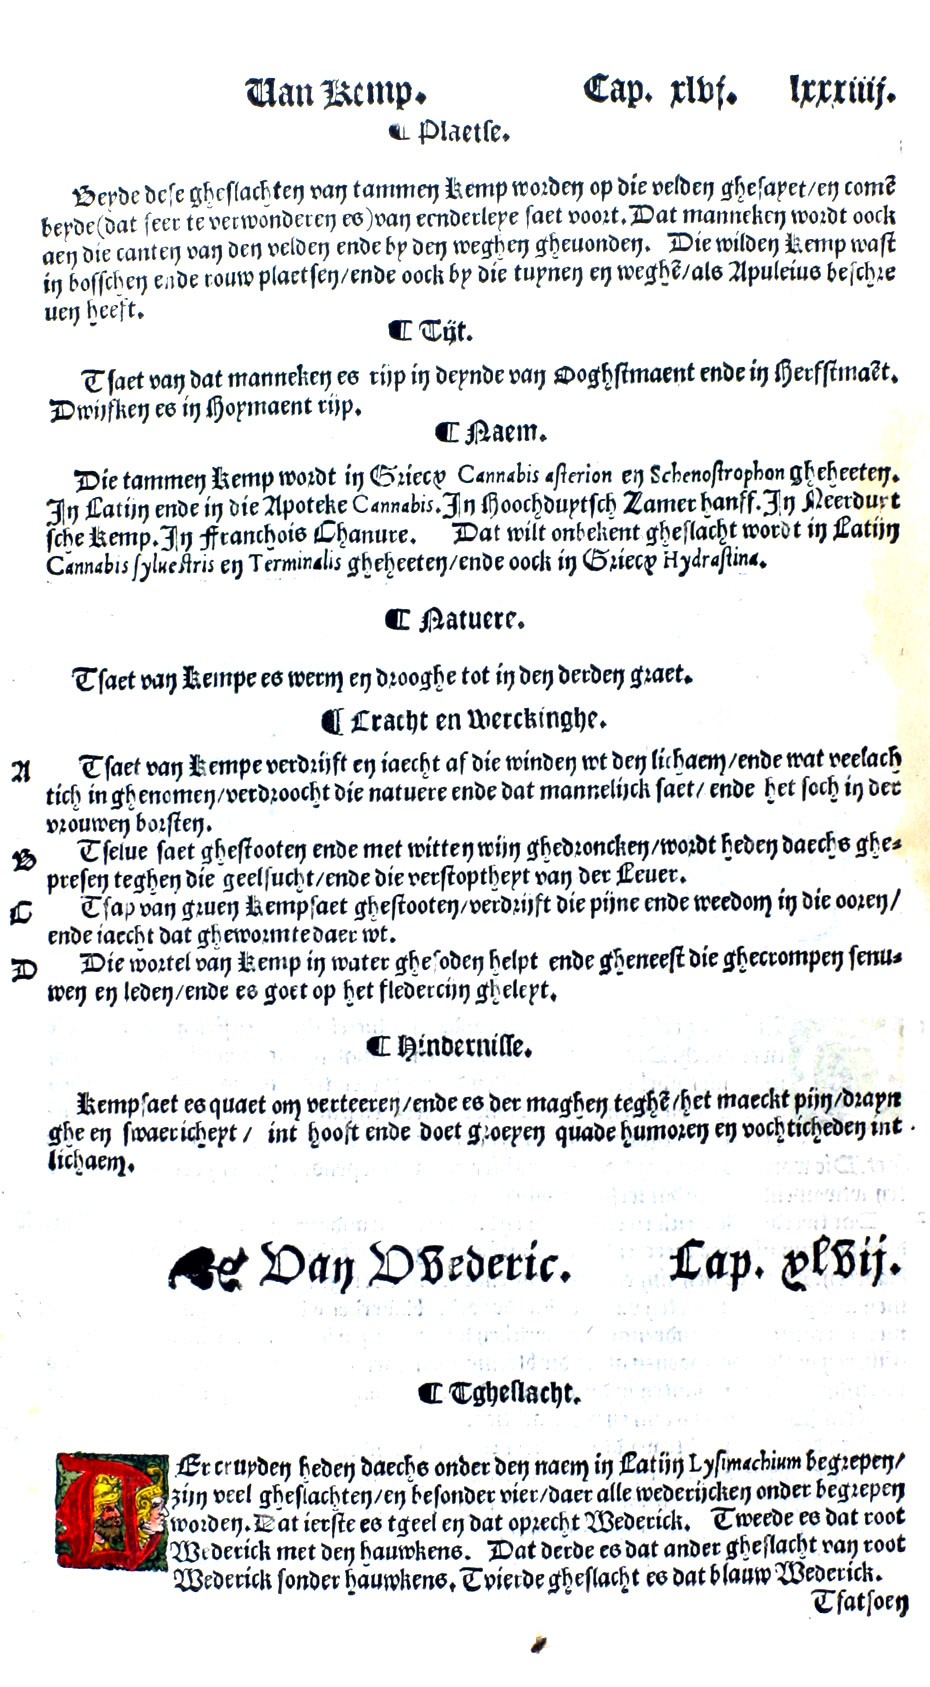 Van Kemp. Cap. xlvj. lxxxiiij.
¶ Plaetse.
Beyde dese gheslachten van tammen Kemp worden op die velden ghesayet/en comē
beyde(dat seer te verwonderen es)van eenderleye saet voort. Dat manneken wordt oock
aen die canten van den velden ende by den weghen gheuonden. Die wilden Kemp wast
in bosschen ende rouw plaetsen/ende oock by die tuynen en weghē/als Apuleius beschre
uen heeft.
¶ Tijt.
Tsaet van dat manneken es rijp in deynde van Ooghstmaent ende in Herfstmaēt.
Dwijfken es in Hoymaent rijp.
¶ Naem.
Die tammen Kemp wordt in Griecx Cannabis asterion en Schenostrophon gheheeten.
In Latijn ende in die Apoteke Cannabis. In Hoochduytsch Zamer hanff. In Neerduyt
sche Kemp. In Franchois Chanure. Dat wilt onbekent gheslacht wordt in Latijn
Cannabis syluestris en Terminalis gheheeten/ende oock in Griecx Hydrastina.
¶ Natuere.
Tsaet van Kempe es werm en drooghe tot in den derden graet.
¶ Cracht en Werckinghe.
A Tsaet van Kempe verdrijft en iaecht af die winden wt den lichaem/ende wat veelach
tich in ghenomen/verdroocht die natuere ende dat mannelijck saet/ ende het soch in der
vrouwen borsten.
B Tselue saet ghestooten ende met witten wijn ghedroncken/wordt heden daechs ghe=
presen teghen die geelsucht/ende die verstoptheyt van der Leuer.
C Tsap van gruen Kempsaet ghestooten/verdrijft die pijne ende weedom in die ooren/
ende iaecht dat ghewormte daer wt.
D Die wortel van Kemp in water ghesoden helpt ende gheneest die ghecrompen senu=
wen en leden/ende es goet op het fledercijn gheleyt.
¶ Hindernisse.
Kempsaet es quaet om verteeren/ende es der maghen teghē/het maeckt pijn/drayn
ghe en swaericheyt / int hooft ende doet groeyen quade humoren en vochticheden int
lichaem.
Van Wederic. Cap. xlvij.
¶ Tgheslacht.
DEr cruyden heden daechs onder den naem in Latijn Lysimachium begrepen/
zijn veel gheslachten/en besonder vier/daer alle wederijcken onder begrepen
worden. Dat ierste es tgeel en dat oprecht Wederick. Tweede es dat root
Wederick met den hauwkens. Dat derde es dat ander gheslacht van root
Wederick sonder hauwkens. Tvierde gheslacht es dat blauw Wederick.
Tfatsoen